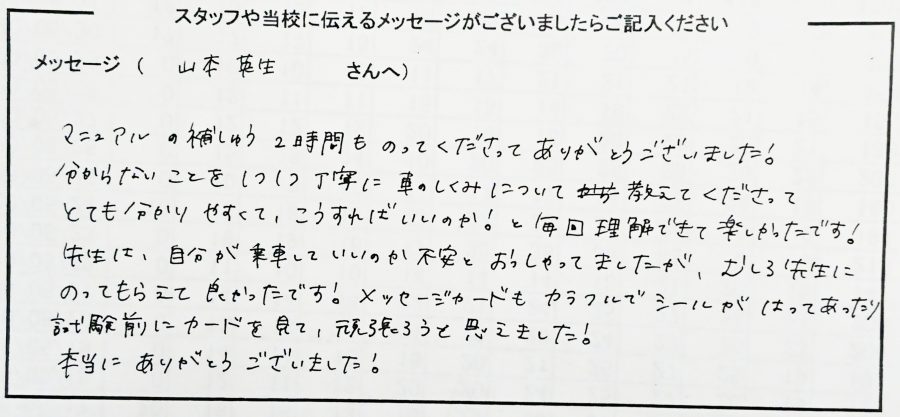 スタッフや当校に伝えるメッセージがございましたらご記入ください
メッセージ ( 山本 英生 さんへ)
マニュアルの補しゅう 2時間も のってくださって ありがとうございました!
分からないことを 1つ1つ 丁寧に 車のしくみについて 教えてくださって
とても分かりやすくて、こうすればいいのか! と 毎回 理解できて 楽しかったです!
先生は、自分が乗車していいのか 不安と おっしゃってましたが、むしろ先生に
のってもらえて 良かったです! メッセージカードも カラフルで シールが はってあったり
試験前に カードを見て、頑張ろうと 思えました!
本当に ありがとう ございました!